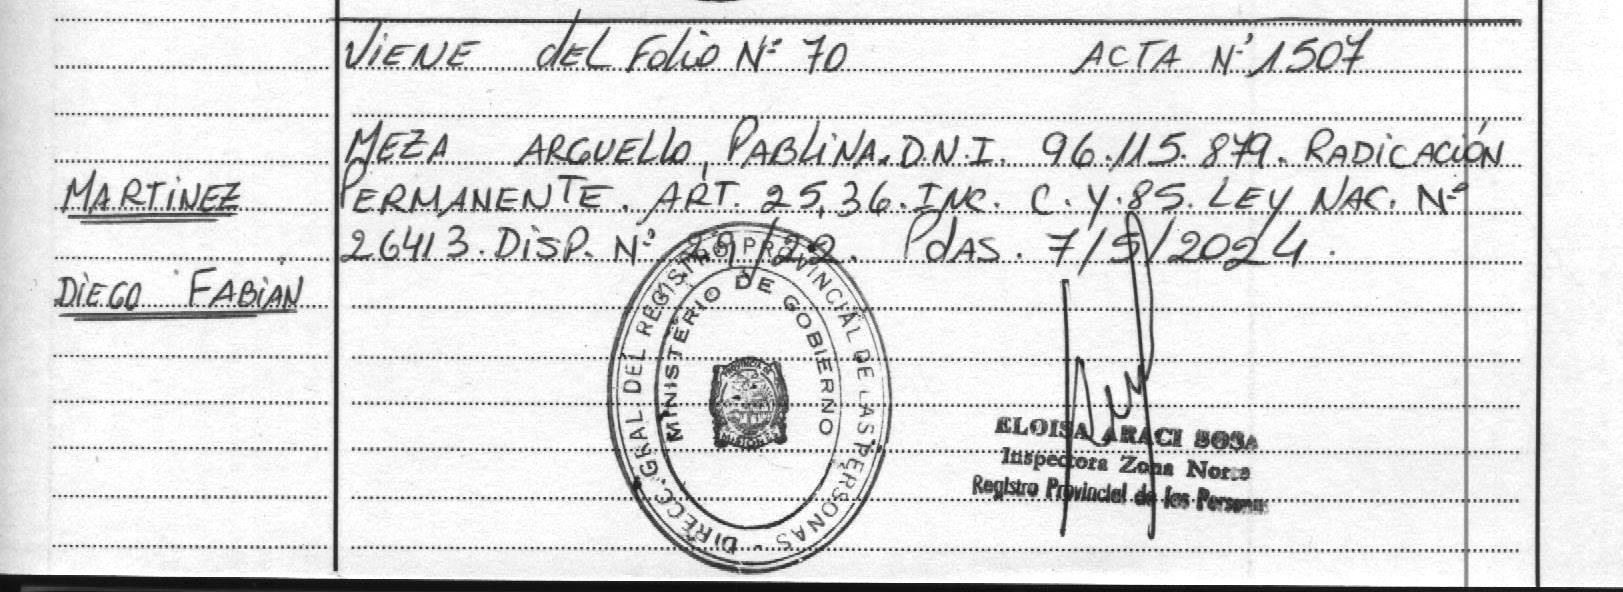 VIENE del Folio Nº 70 ACTA Nº 1507
MEZA ARGUELLO, PABLINA. D.N.I. 96.115.879. RADICACIÓN
MARTINEZ
PERMANENTE. ART. 25, 36. INC. C. Y. 85. LEY NAC. Nº
26413. DISP. Nº 29/22. Pdas. 7/5/2024.
DIEGO FABIAN
DIRECC. GRAL. DEL REGISTRO PROVINCIAL DE LAS PERSONAS
MINISTERIO DE GOBIERNO
PROVINCIA DE
MISIONES
ELOISA ARACI SOSA
Inspectora Zona Norte
Registro Provincial de las Personas